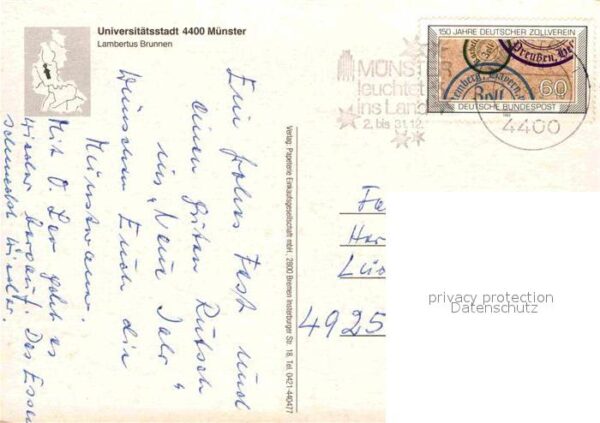 Universitätsstadt 4400 Münster
Lambertus Brunnen
Ein frohes Fest und
einen guten Rutsch
ins „Neue Jahr“
wünschen Euch die
Münsteraner.
Mit O. Leo geht es
wieder berauf. Das Essen
schmeckt wieder.
Verlag: Papeterie Einkaufsgesellschaft mbH, 2800 Bremen Insterburger Str. 18, Tel. 0421-440477
MÜNST
leuchtet
ins Land
2. bis 31.12.
150 JAHRE DEUTSCHER ZOLLVEREIN
Preußen, He
emberg, Bayern
Zoll
60
DEUTSCHE BUNDESPOST
4400
Fa
Her
Lüd
4925
privacy protection
Datenschutz